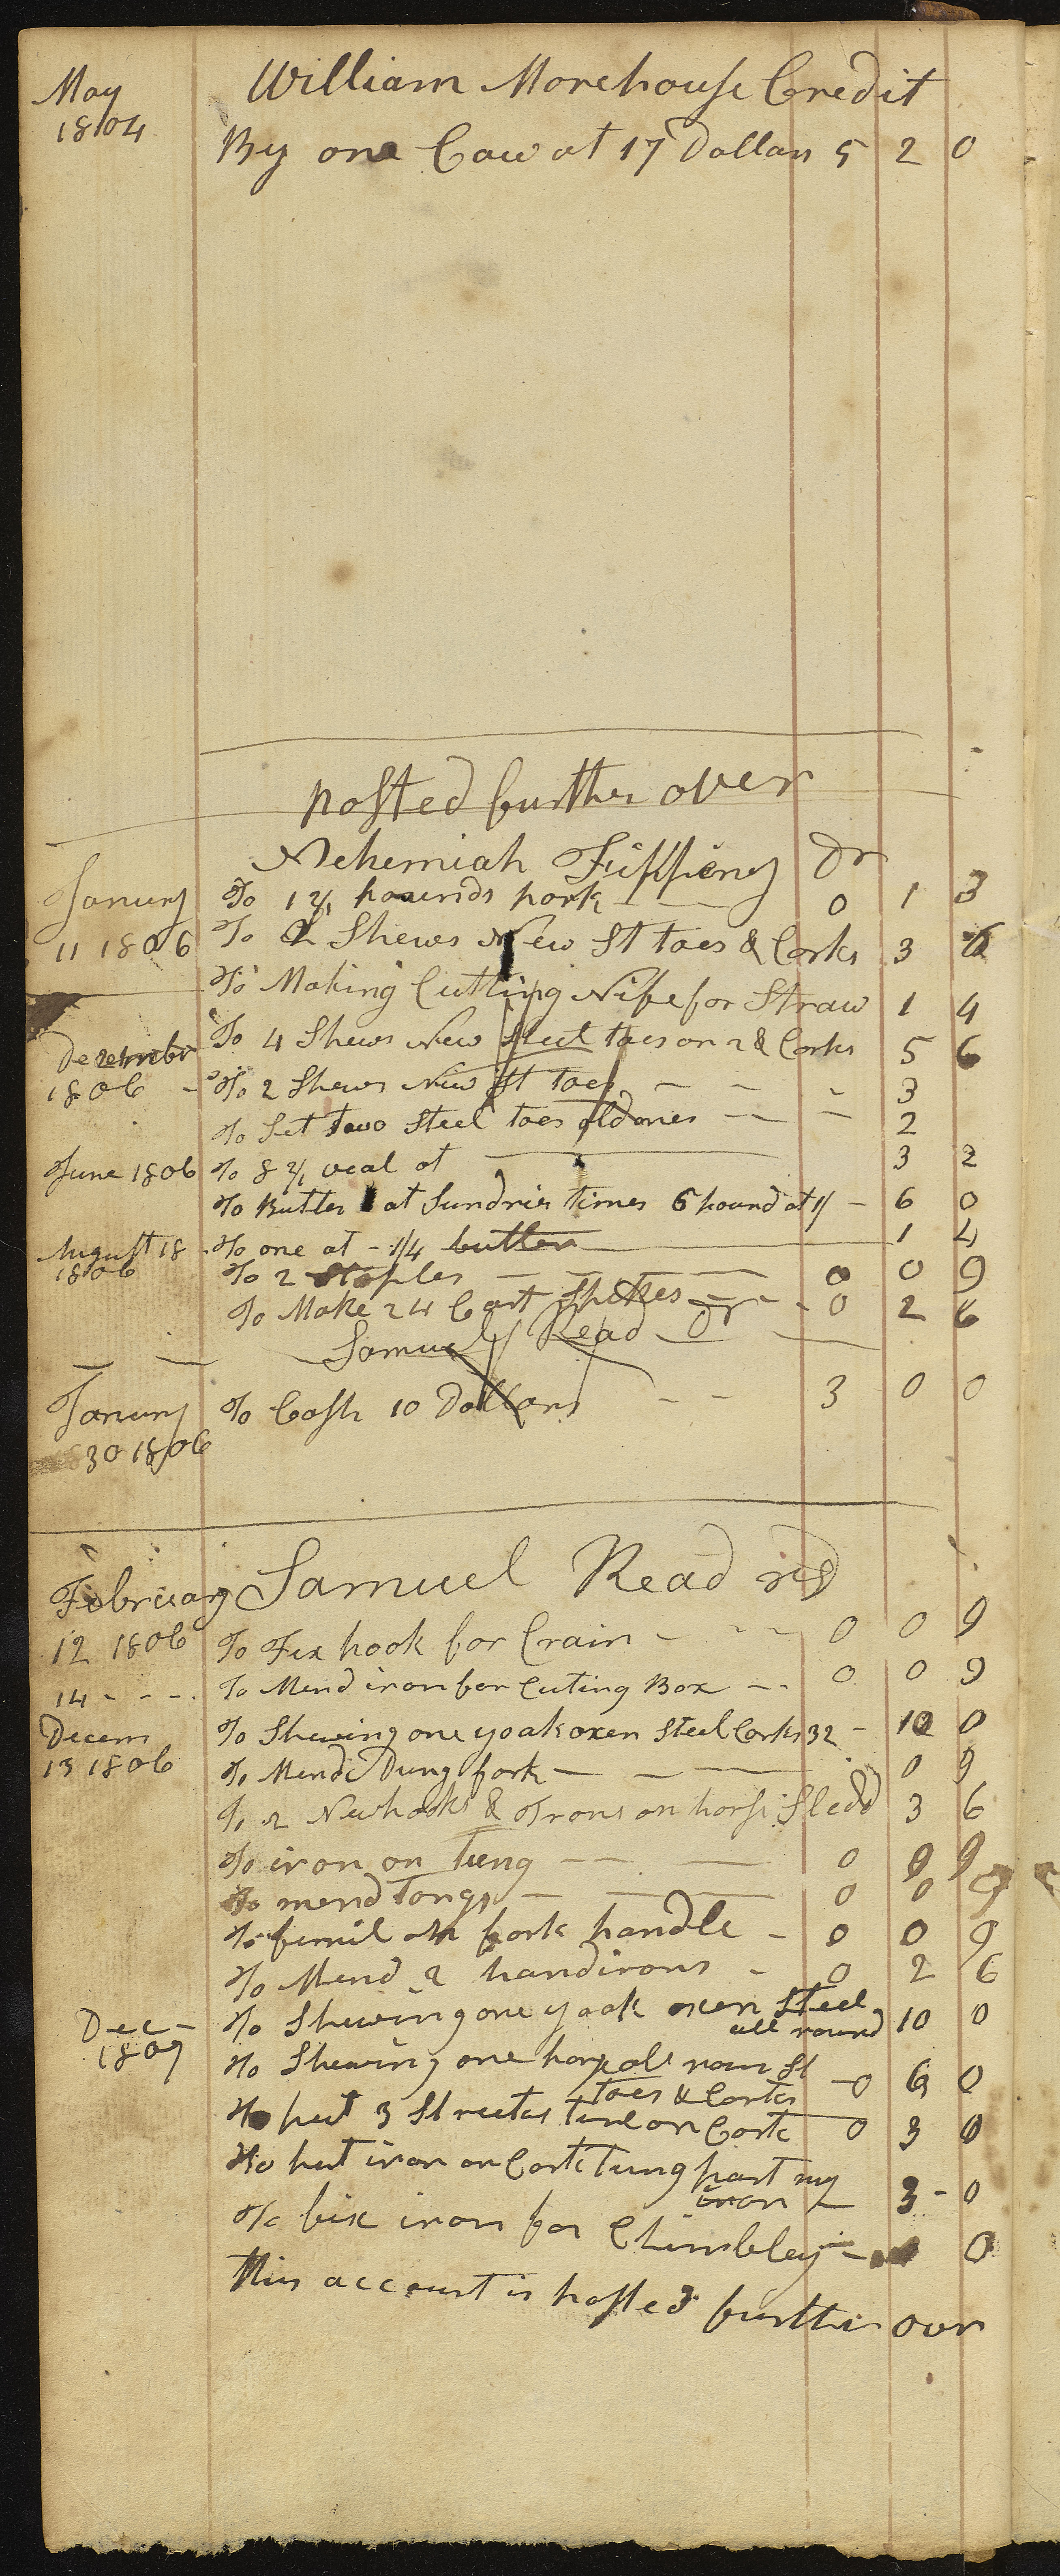 May William Morehouse Credit
1804
By one Cow at 17 Dollars 5 2 0
posted further over
Nehemiah Dr
January To pounds pork 0 1 3
11 1806 To 2 Shews New St toes & Corks 3 6
To Making Cutting Nife for Straw 1 4
December To 4 Shews New Steel toes on 2 & Corks 5 6
1806 - To 2 Shews New St toes - - - 3
To Set Two Steel toes old ones - - 2
June 1806 To 8 veal at 3 2
To Butter at Sundries times 6 pound at 1/ - 6 0
August 18 To one at - 1/4 butter 1 4
1806 To 2 Staples - - - 0 0 9
To Make 24 Cart Spikes - - - 0 2 6
Samuel Read Dr
January To Cash 10 Dollars - - 3 0 0
30 1806
February Samuel Read
12 1806 To Fix hook for Crain - - - 0 0 9
14 - - - To Mend iron for Cuting Box - - 0 0 9
Decem To Shewing one yoak oxen Steel Corks 32 - 10 0
13 1806 To Mend Dung fork - - - 0 9
To 2 New hooks & Irons on horse Sledd 3 6
To iron on Tung - - - 0 9 9
To mend Tongs - - 0 0 9
To ferril on fork handle - 0 0 9
To Mend 2 handirons - 0 2 6
Dec - To Shewing one yoak oxen Steel 10 0
1807 all round
To Shewing one horse all roun St
toes & Corks - 0 6 0
To put 3 Streeks tire on Cart 0 3 0
To put iron on Cart Tung part my
iron 3 - 0
To fix iron for Chimbley - 0
this account is posted further over